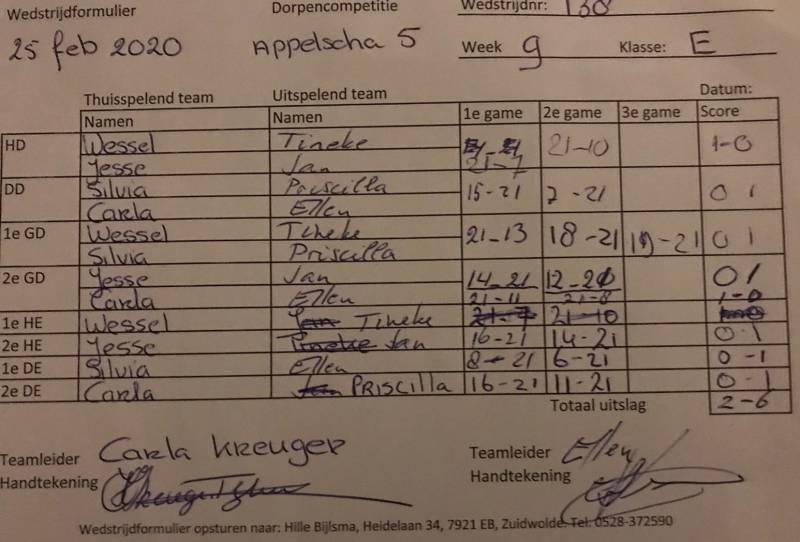 Wedstrijdformulier Dorpencompetitie Wedstrijdnr: 130
25 feb 2020 Appelscha 5 Week 9 Klasse: E
Thuisspelend team Uitspelend team Datum:
Namen Namen 1e game 2e game 3e game Score
HD Wessel Tineke 21-10 1-0
Yesse Jan 21-7
DD Silvia Priscilla 15-21 7-21 0 1
Carla Ellen
1e GD Wessel Tineke 21-13 18-21 19-21 0 1
Silvia Priscilla
2e GD Yesse Jan 14-21 12-21 0 1
Carla Ellen 21-11 21-8 1-0
1e HE Wessel Jan Tineke 21-7 21-10
2e HE Yesse Tineke Jan 16-21 14-21 0-1
1e DE Silvia Ellen 8-21 6-21 0-1
2e DE Carla Jan PRISCILLA 16-21 11-21 0-1
Totaal uitslag 2-6
Teamleider Carla Kreuger Teamleider Ellen
Handtekening Handtekening
Wedstrijdformulier opsturen naar: Hille Bijlsma, Heidelaan 34, 7921 EB, Zuidwolde. Tel: 0528-372590